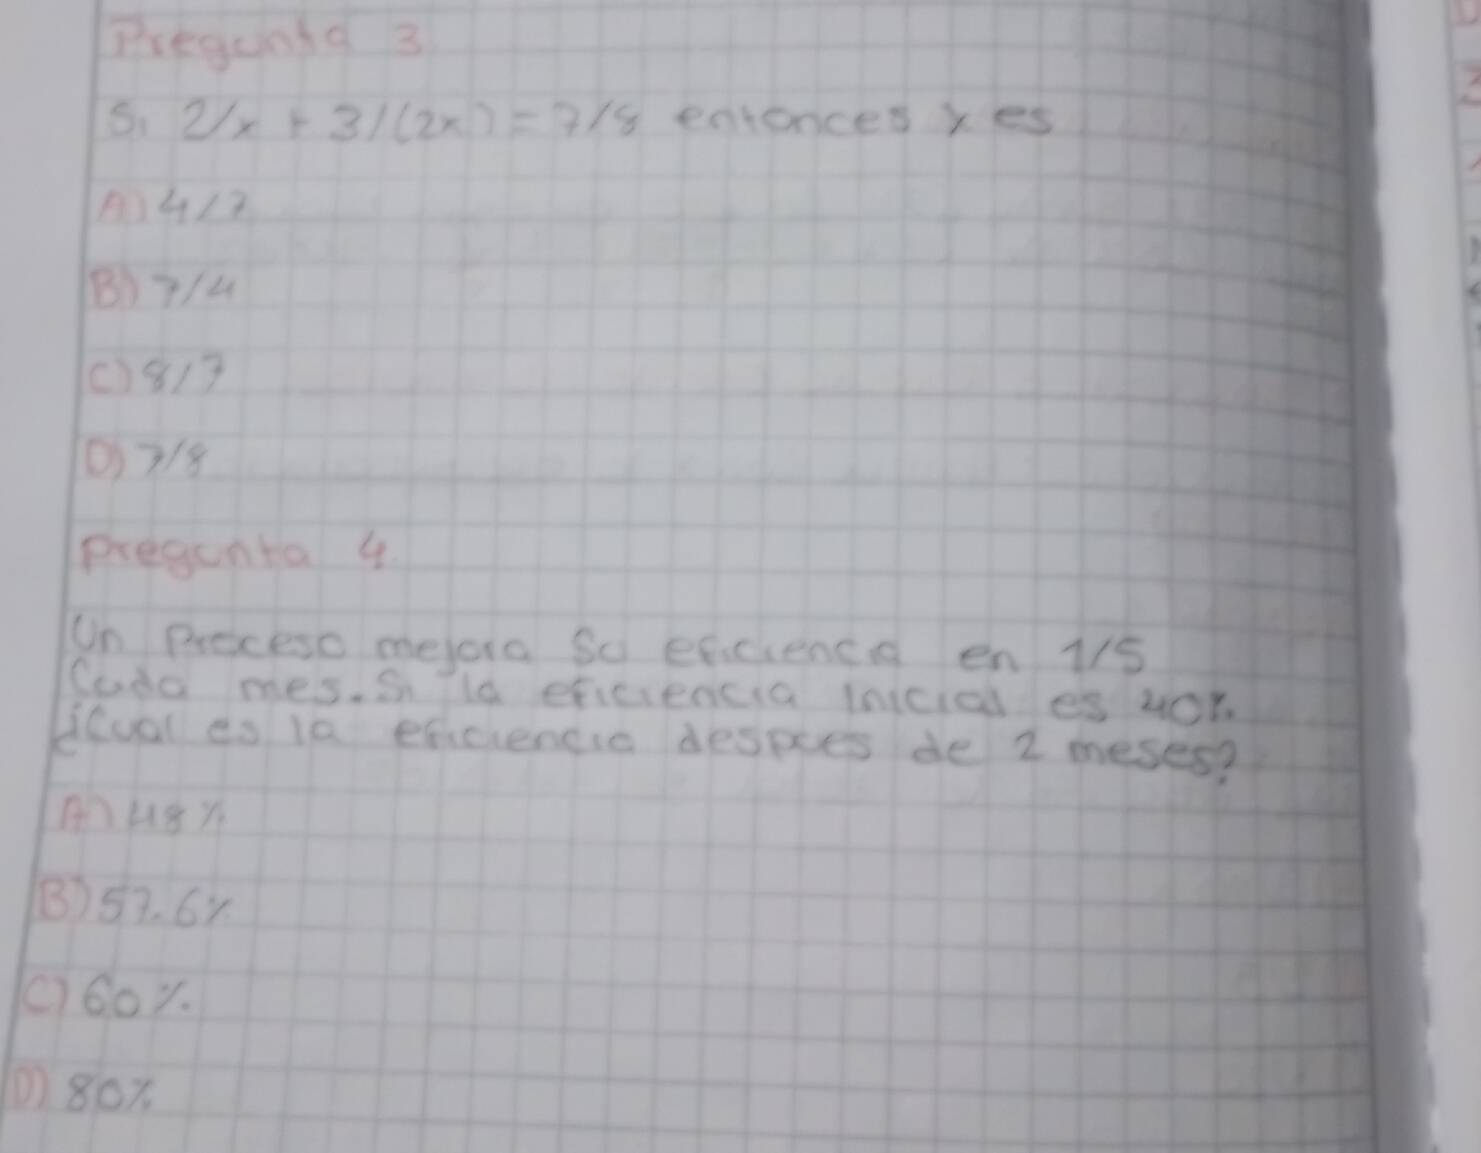 Pregunta 3
Si 2/x + 3/(2x) = 7/8 entonces x es
A) 4/7
B) 7/4
C) 8/7
D) 7/8
Pregunta 4
Un Proceso mejora su eficiencia en 1/5
Cada mes. Si la eficiencia inicial es 40%
¿Cual es la eficiencia despues de 2 meses?
A) 48%
B) 57.6%
C) 60%
D) 80%